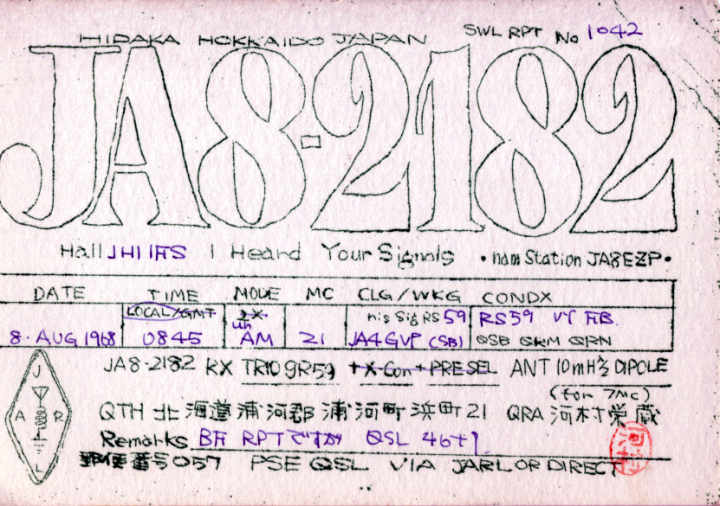 HIDAKA HOKKAIDO JAPAN SWL RPT No 1042
JA8-2182
Hall JH1IFS I Heard Your Signals • ham Station JA8EZP •
DATE TIME MODE MC CLG/WKG CONDX
LOCAL/GMT his Sig RS 59 RS59 VY FB.
8. AUG 1968 0845 AM 21 JA4GVP (SB) QSB QRM QRN
JA8-2182 RX TRIO 9R59 +X-Con+PRESEL ANT 10mH 1/2 DIPOLE
(for 7MC)
QTH 北海道浦河郡浦河町浜町21 QRA 河村栄蔵
Remarks BF RPTですが QSL
郵便番号057 PSE QSL VIA JARL OR DIRECT
J
A R
L